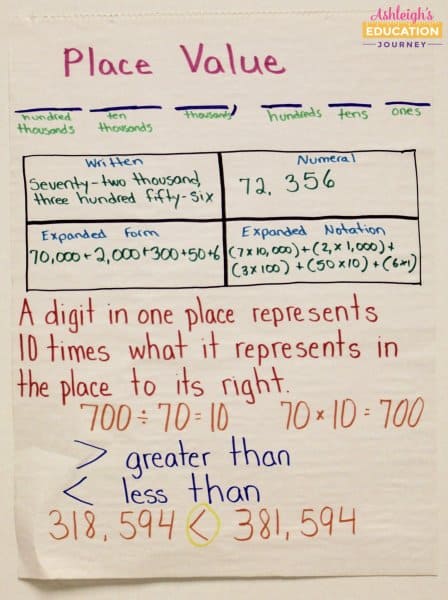 Ashleigh's
EDUCATION
JOURNEY
Place Value
hundred thousands
ten thousands
thousands,
hundreds
tens
ones
Written
Seventy-two thousand,
three hundred fifty-six
Numeral
72, 356
Expanded Form
70,000+2,000+300+50+6
Expanded Notation
(7x10,000)+(2,x1,000)+
(3x100)+(50x10)+(6x1)
A digit in one place represents
10 times what it represents in
the place to its right.
700÷70=10 70×10=700
> greater than
< less than
318,594 < 381,594